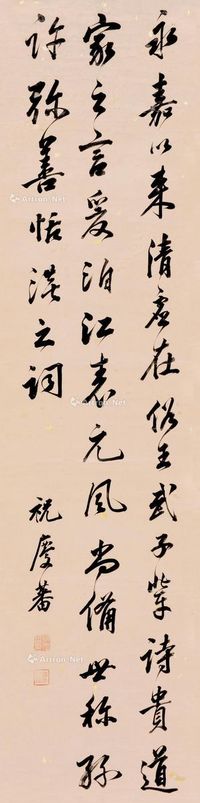 永嘉以来清虚在俗王武子辈诗贵道
家之言爰洎江表元风尚备世称孙
许弥善恬淡之词
祝庆蕃